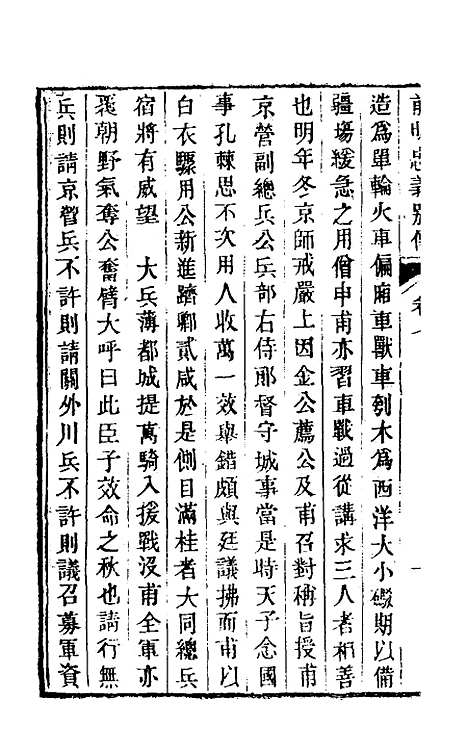 前明忠義別傳
卷
造為單輪火車偏廂車獸車刳木為西洋大小礟期以備
疆場緩急之用僧申甫亦習車戰過從講求三人者相善
也明年冬京師戒嚴上因金公薦公及甫召對稱旨授甫
京營副總兵公兵部右侍郎督守城事當是時天子念國
事孔棘思不次用人收萬一效舉錯頗與廷議拂而甫以
白衣驟用公新進躋卿貳咸於是側目滿桂者大同總兵
宿將有威望　大兵薄都城提萬騎入援戰沒甫全軍亦
喪朝野氣奪公奮臂大呼曰此臣子效命之秋也請行無
兵則請京營兵不許則請關外川兵不許則議召募軍資